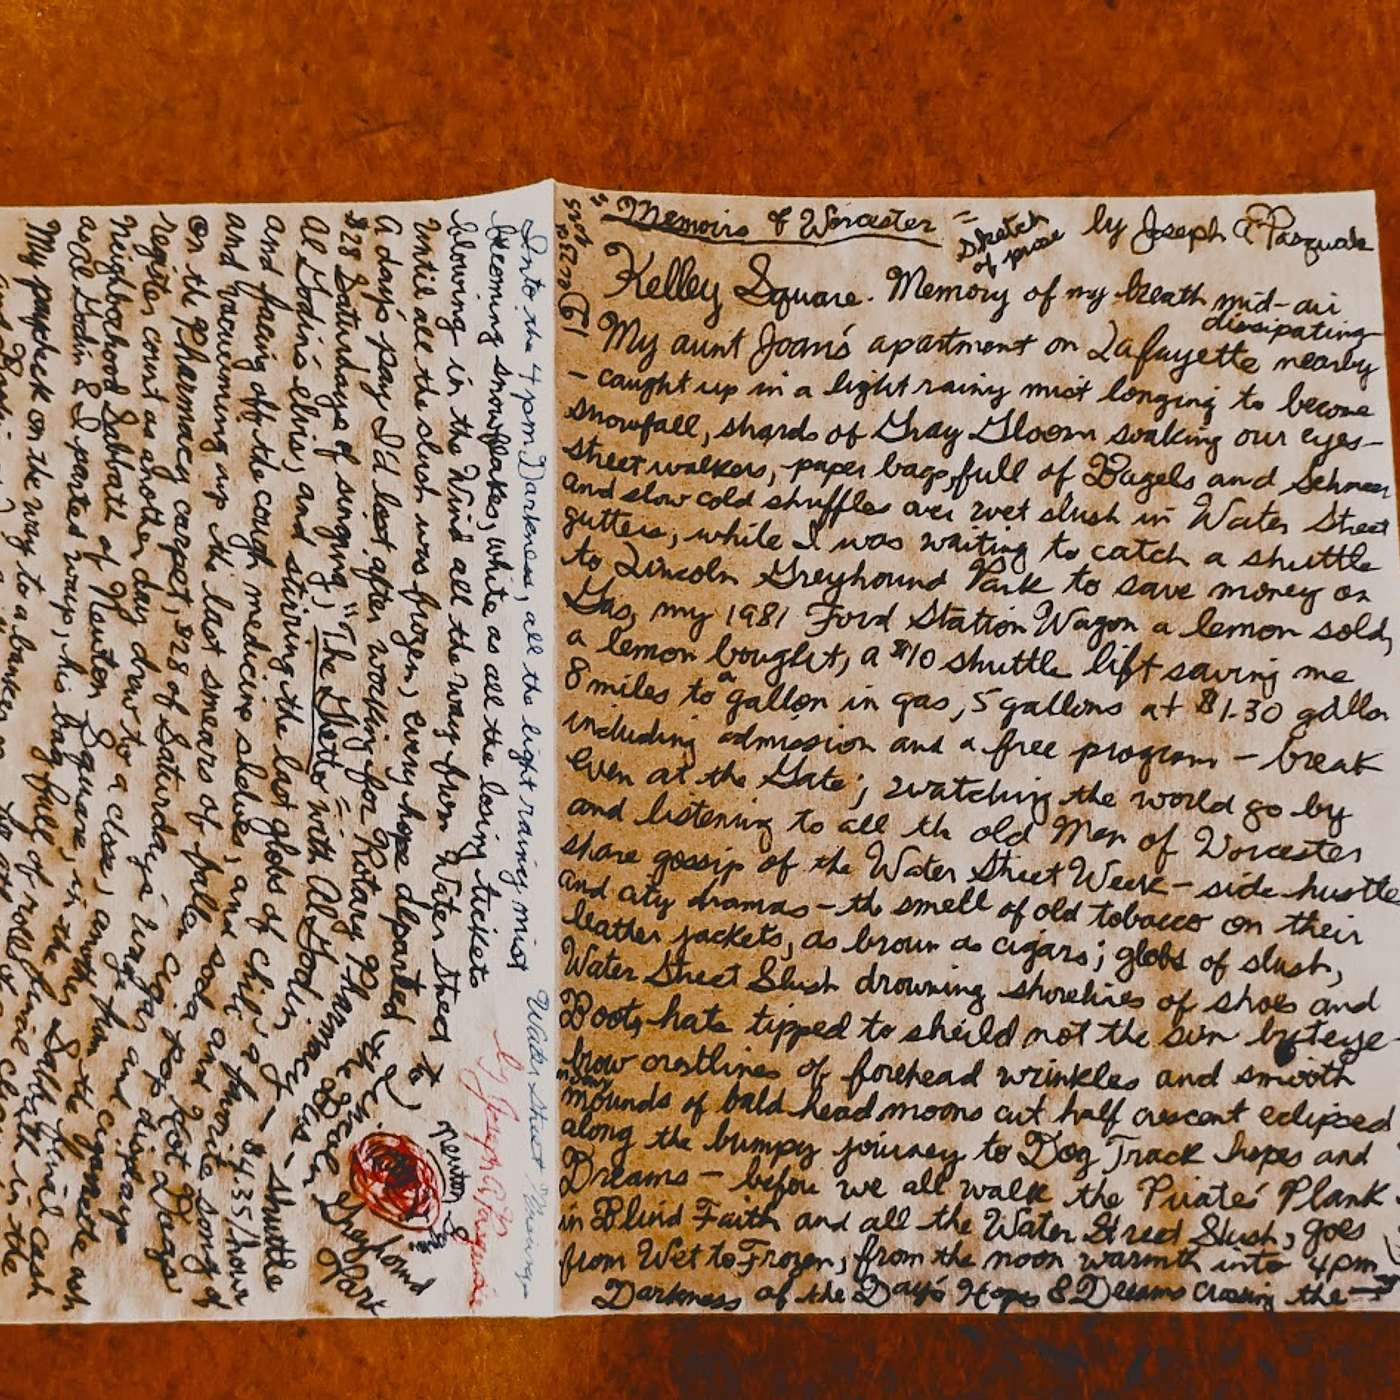 Memoirs of Worcester = Sketch of prose by Joseph A Pasquale
Kelley Square. Memory of my breath mid-air
dissipating
My aunt Joan's apartment on Lafayette nearby
- caught up in a light rainy mist longing to become
snowfall, shards of Gray Gloom soaking our eyes-
street walkers, paper bags full of Bagels and Schmeer
and slow cold shuffles over wet slush in Water Street
gutters, while I was waiting to catch a shuttle
to Lincoln Greyhound Park to save money on
Gas, my 1981 Ford Station Wagon a lemon sold,
a lemon bought, a $10 shuttle lift saving me
8 miles to a gallon in gas, 5 gallons at $1.30 gallon
including admission and a free program - break
even at the Gate; watching the world go by
and listening to all th old Men of Worcester
share gossip of the Water Street Week - side hustle
and city dramas - the smell of old tobacco on their
leather jackets, as brown as cigars; globs of slush,
Water Street Slush drowning shorelines of shoes and
Boots, hats tipped to sheild not the sun but eye-
brow crestlines of forehead wrinkles and smooth
mounds of bald head moons cut half crescent eclipsed
along the bumpy journey to Dog Track hopes and
Dreams - before we all walk the Pirate's Plank
in Blind Faith and all the Water Street Slush, goes
from Wet to Frozen, from the noon warmth into 4pm
Darkness of the Day's Hopes & Dreams crossing the
Into the 4pm Darkness, all the light rainy mist
becoming snowflakes, white as all the losing tickets
blowing in the Wind all the way from Water Street to Newton Sq.
Until all the slush was frozen, every hope departed
A day's pay I'd lost after working for Rotary Pharmacy
$28 Saturdays of singing, "The Ghetto" with Al Godin
Al Godin's elvis, and stirring the last globs of chili
and facing off the cough medicine shelves, and
and vacuuming up the last smears of
on the Pharmacy carpet, $28 of Saturday's wages
register count as another day draw to a close, another
Neighborhood Sabbath of Newton Square, in the
as Al Godin & I parted ways, his bag full of
My paycheck on the way to a
a favorite song of
$4.35/hour
shuttle
Greyhound
Park
Water Street Musings
by Joseph A Pasquale